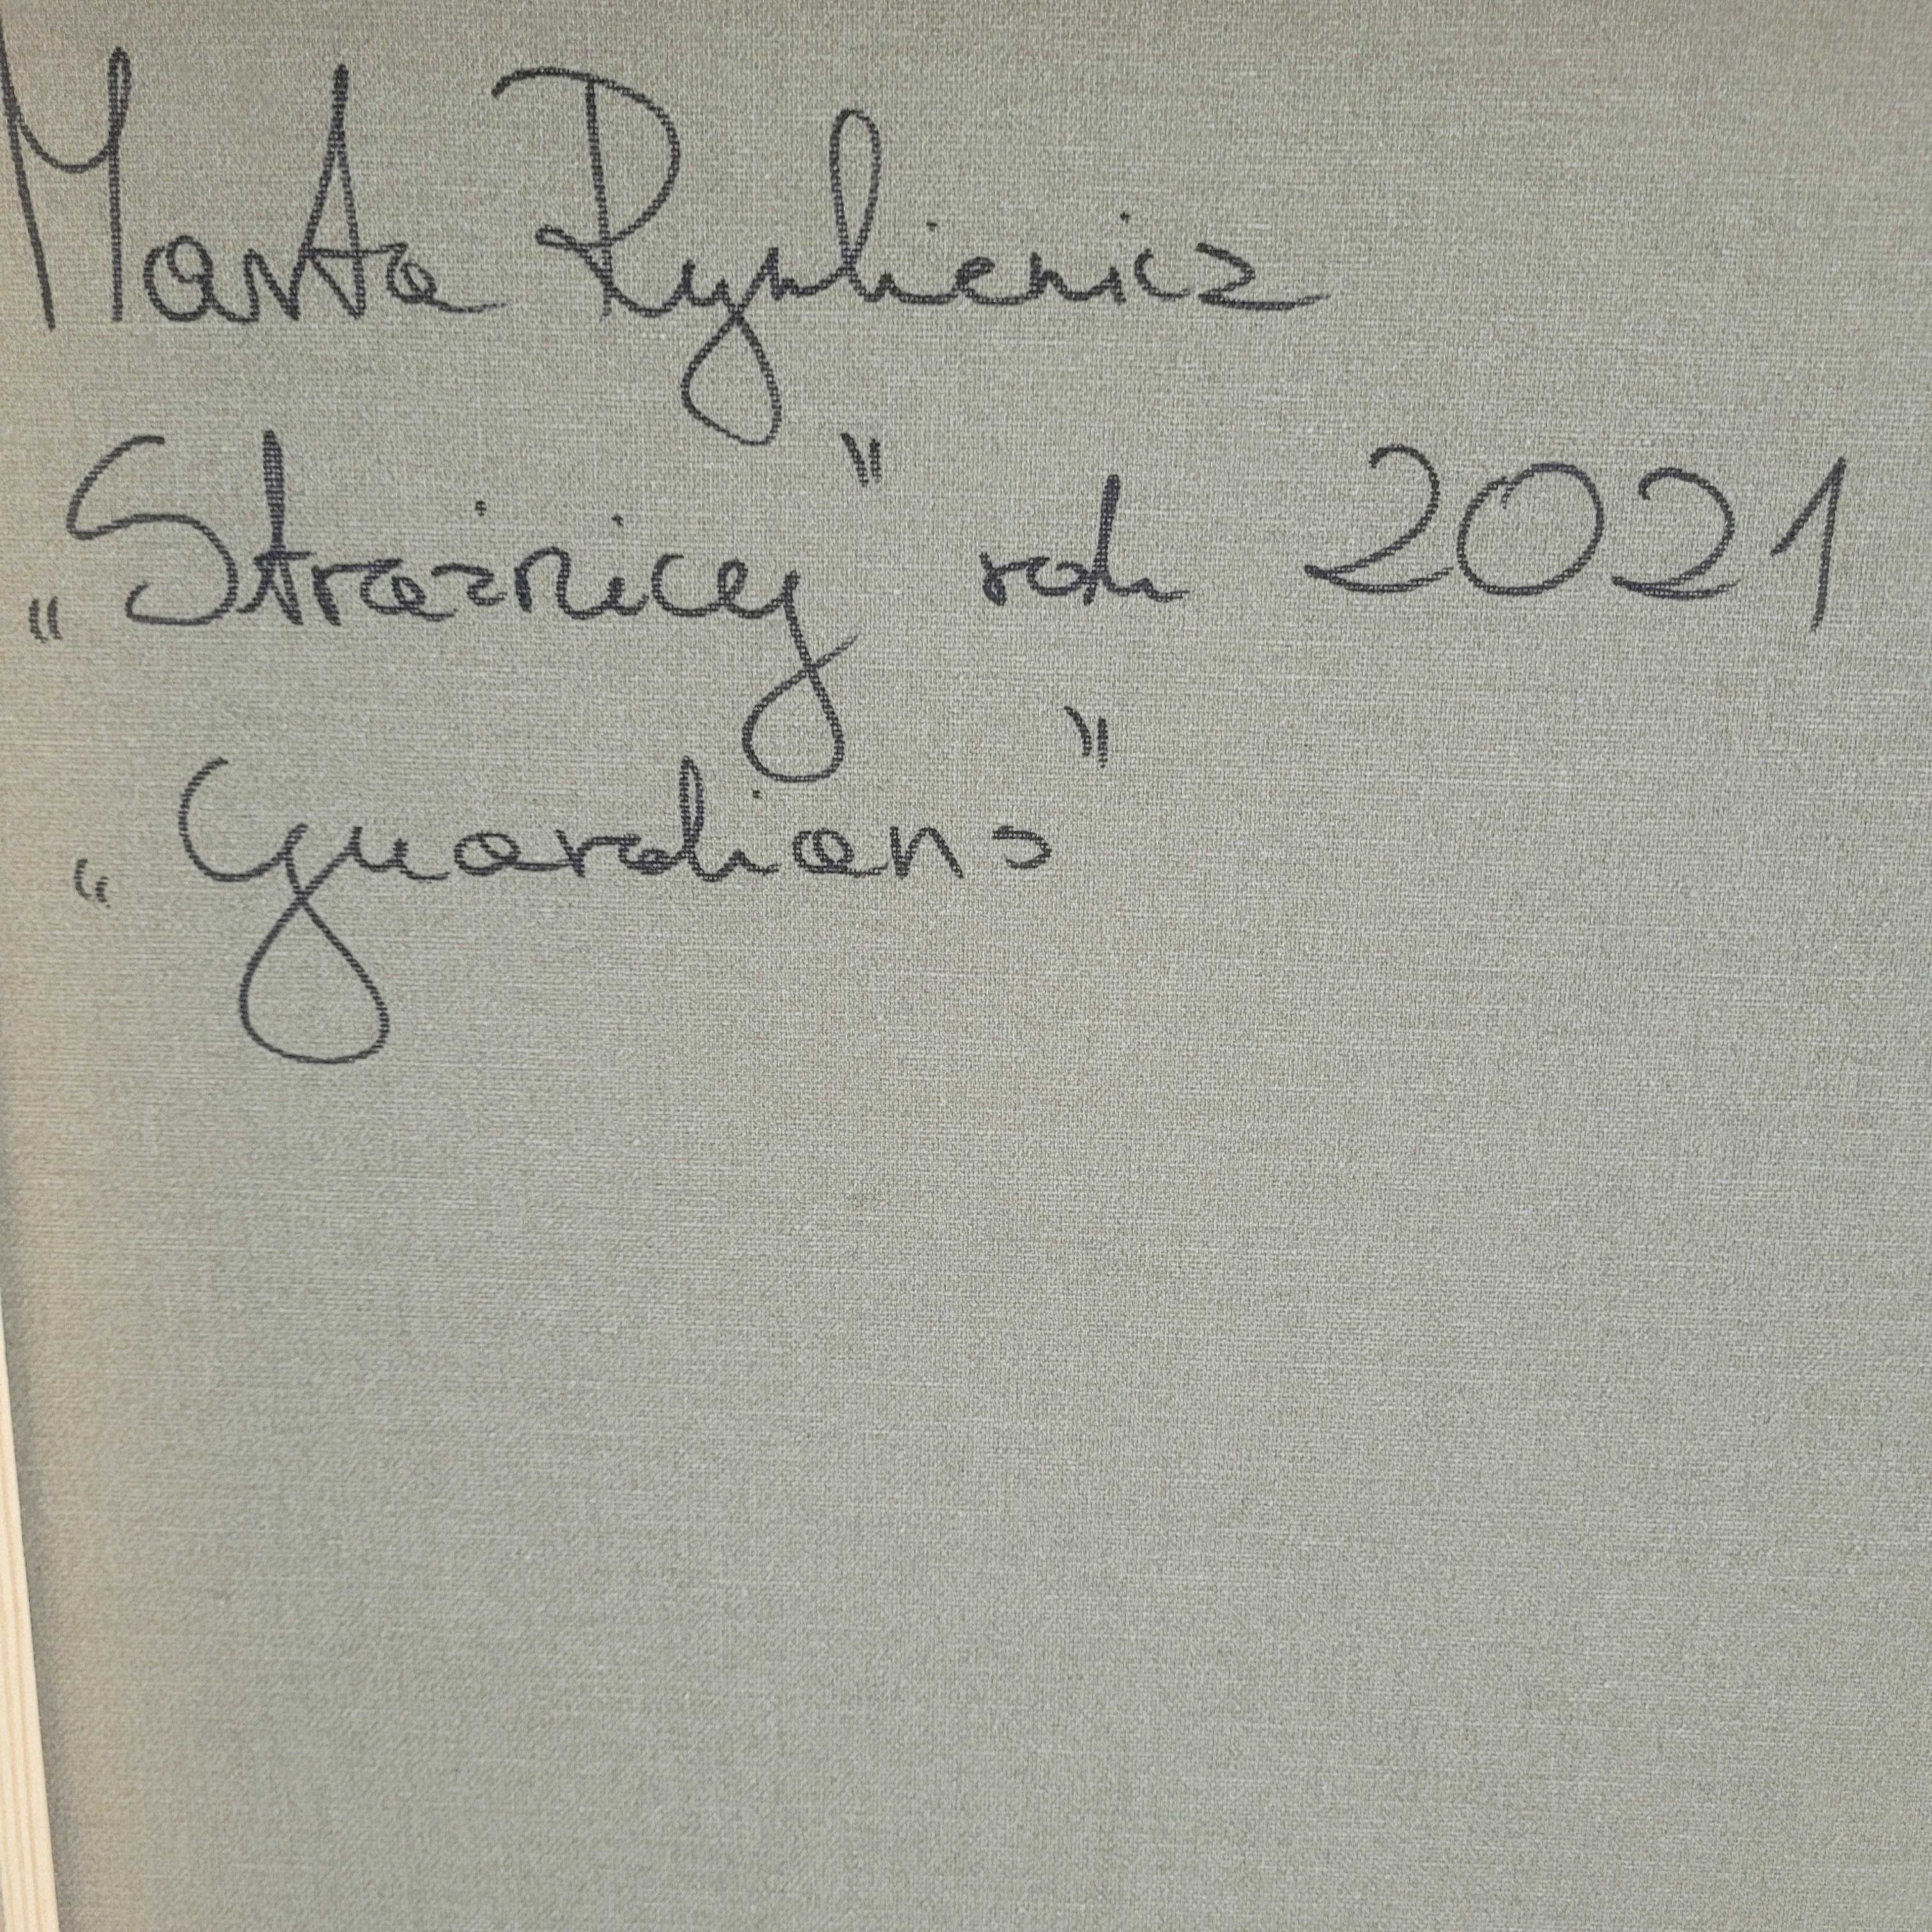 Marta Rynkiewicz
„Strażnicy" rok 2021
„Guardians"